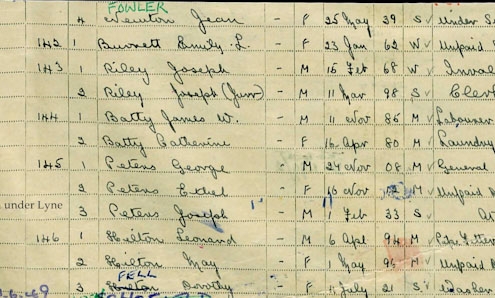 FOWLER
4 Newton Jean - F 25 May 29 S ✓ Under S
142 1 Burnett Emily L. - F 23 Jan 62 W ✓ Unpaid
143 1 Riley Joseph - M 15 Feb 68 W ✓ Inval
2 Riley Joseph (Junr) - M 11 Mar 98 S ✓ Cler
144 1 Batty James W. - M 11 Nov 86 M ✓ Labourer
2 Batty Catherine - F 16 Apr 80 M ✓ Laundry
145 1 Peters George - M 24 Nov 08 M ✓ General
2 Peters Ethel - F 16 Nov M ✓ Unpaid
under Lyne
3 Peters Joseph - M 1 Feb 33 S ✓ At
146 1 Hilton Leonard - M 6 Apl 94 M ✓ Pipe Fitter
2 Hilton May - F 1 May 96 M ✓ Unpaid
FELL
3 Hilton Dorothy - F July 21 S ✓ Washer